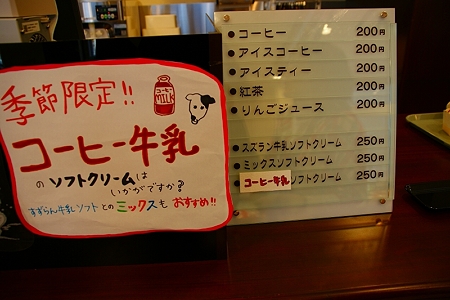 季節限定!!
MILK
コーヒー牛乳
のソフトクリームは
いかがですか?
すずらん牛乳ソフトとのミックスもおすすめ!!
●コーヒー 200円
●アイスコーヒー 200円
●アイスティー 200円
●紅茶 200円
●りんごジュース 200円
●スズラン牛乳ソフトクリーム 250円
●ミックスソフトクリーム 250円
●コーヒー牛乳ソフトクリーム 250円